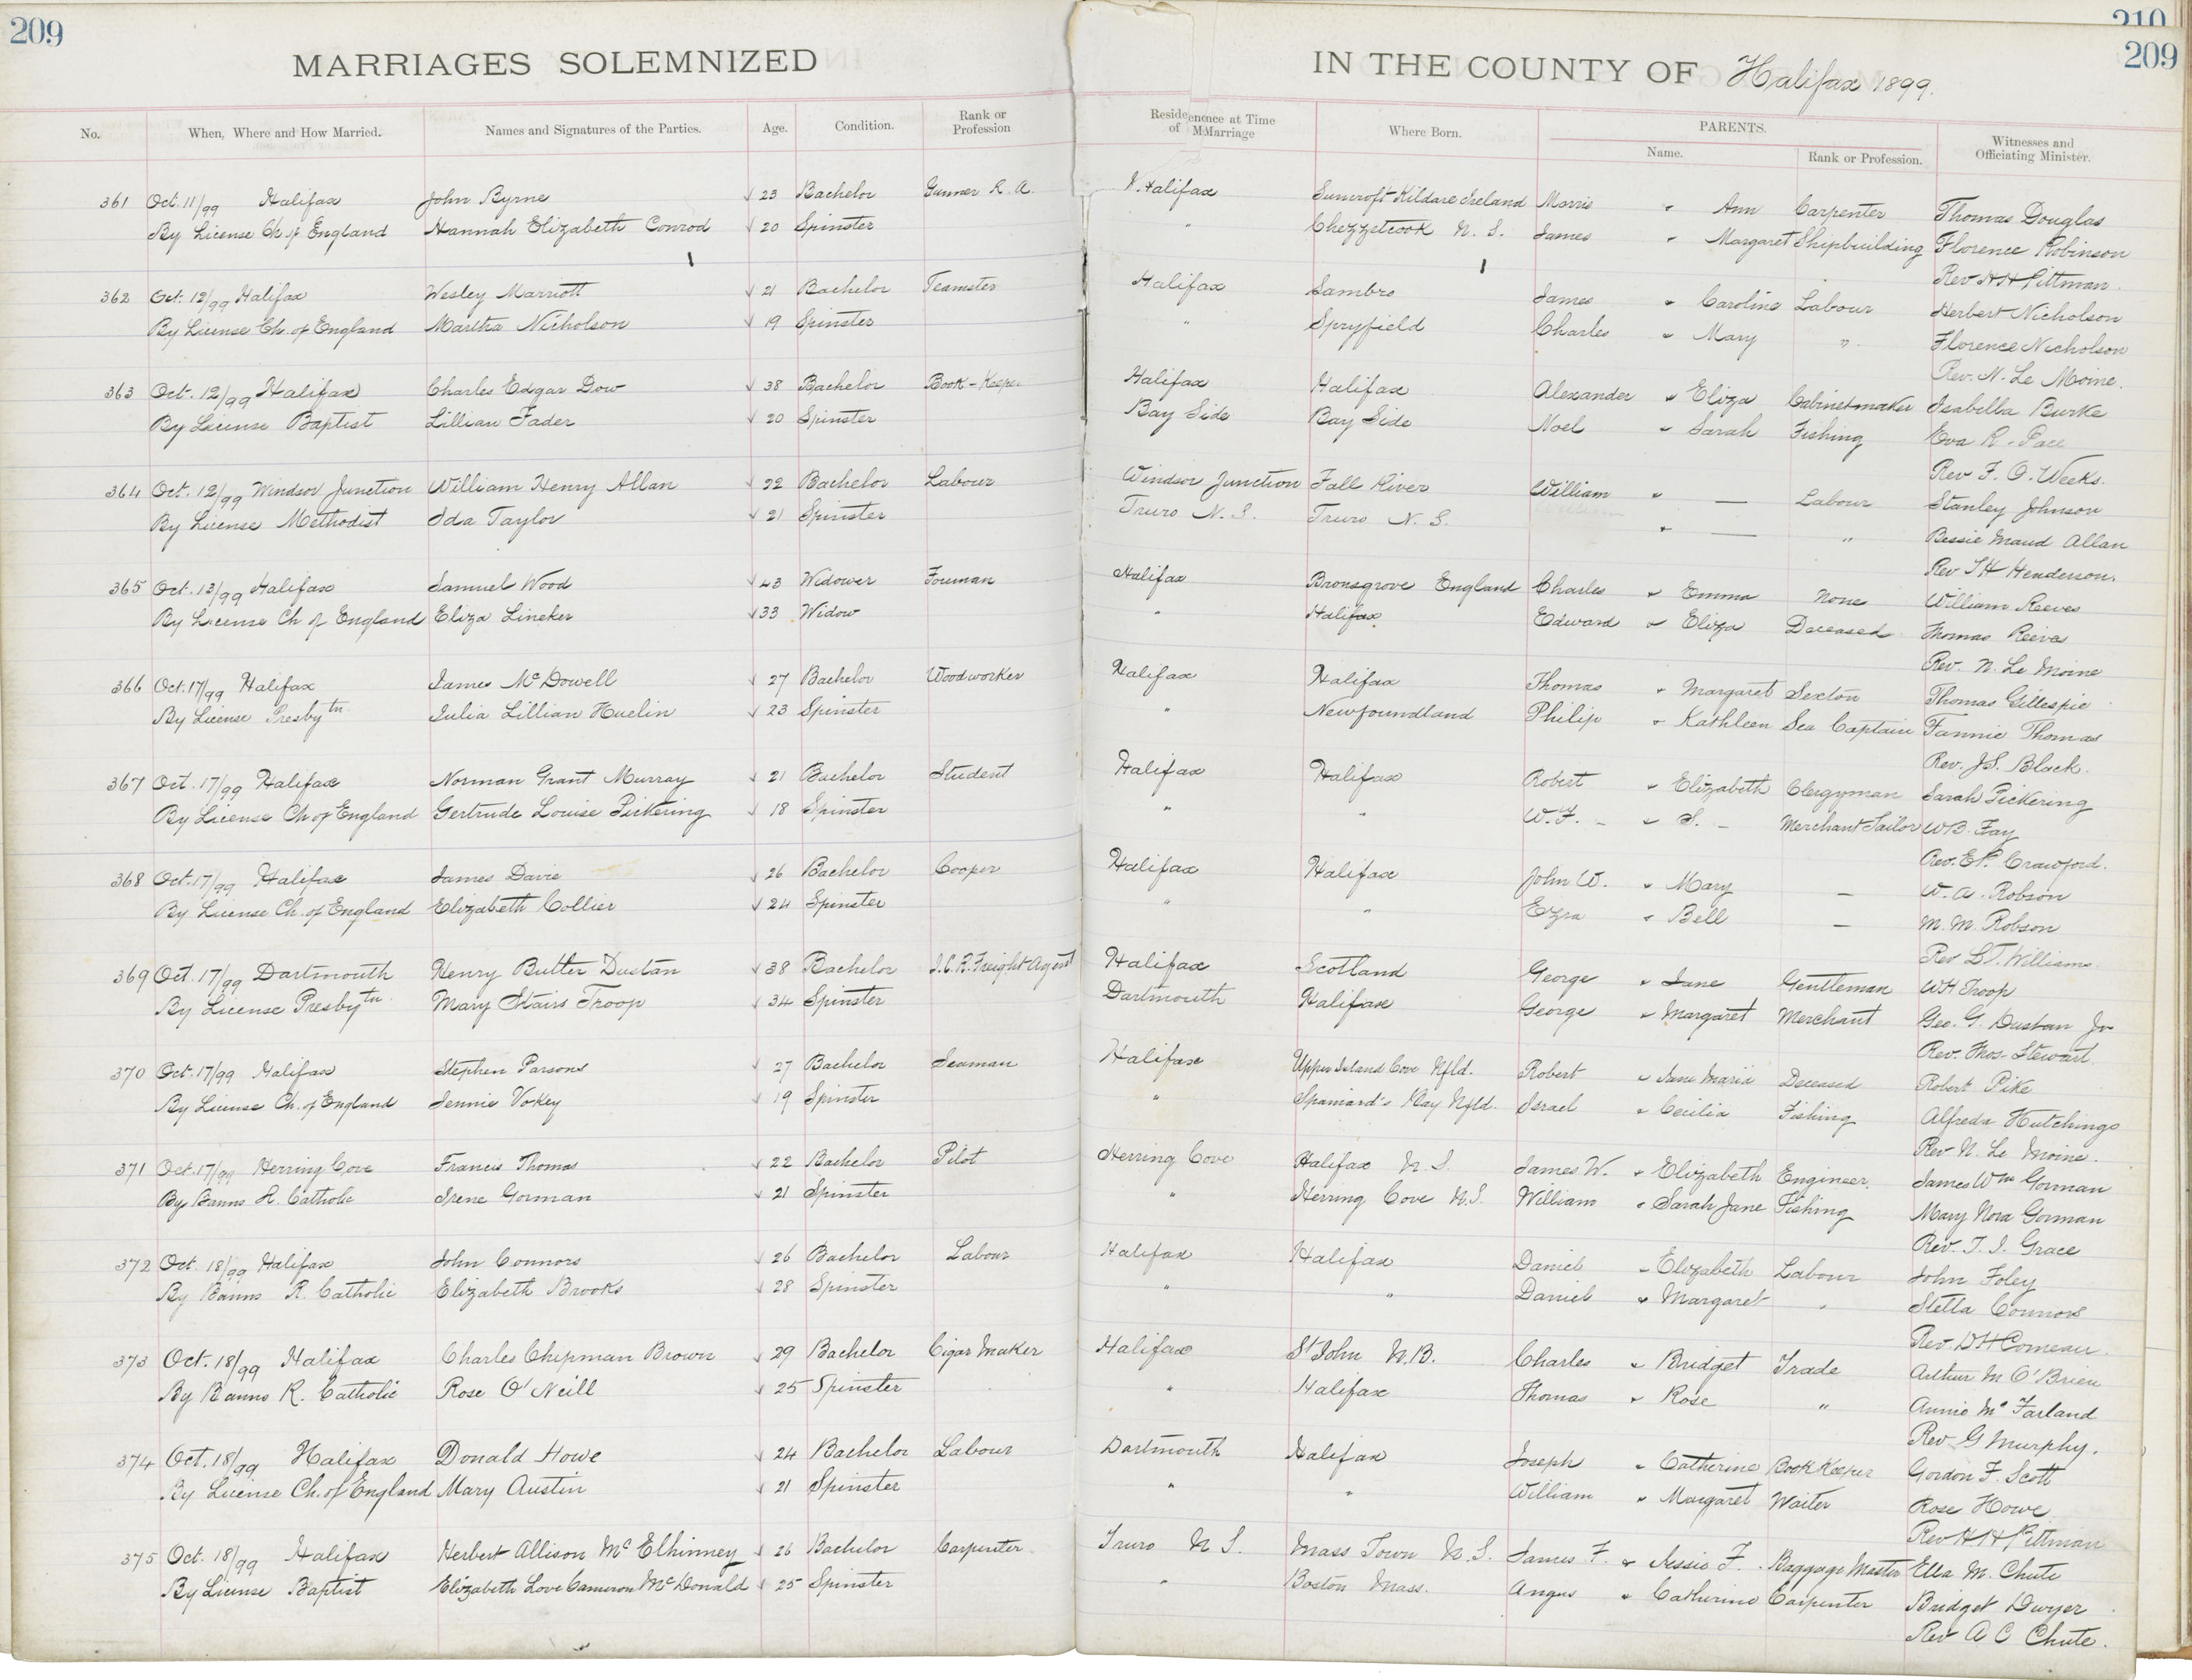 209 210
MARRIAGES SOLEMNIZED IN THE COUNTY OF Halifax 1899. 209
No. When, Where and How Married. Names and Signatures of the Parties. Age. Condition. Rank or Profession Residence at Time of Marriage Where Born. PARENTS. Name. Rank or Profession. Witnesses and Officiating Minister.
361 Oct. 11/99 Halifax John Byrne √ 23 Bachelor Gunner R. A. Halifax Kildare Ireland Morris " Ann Carpenter Thomas Douglas
By License Ch. of England Hannah Elizabeth Conrod √ 20 Spinster " Chezzetcook N. S. James " Margaret Shipbuilding Florence Robinson
Rev H H Pittman.
362 Oct. 12/99 Halifax Wesley Marriott √ 21 Bachelor Teamster Halifax Sambro James " Caroline Labour Herbert Nicholson
By License Ch. of England Martha Nicholson √ 19 Spinster " Spryfield Charles " Mary " Florence Nicholson
Rev. N. Le Moine.
363 Oct. 12/99 Halifax Charles Edgar Dow √ 38 Bachelor Book-Keeper Halifax Halifax Alexander " Eliza Cabinetmaker Isabella Burke
By License Baptist Lillian Fader √ 20 Spinster Bay Side Bay Side Noel " Sarah Fishing Eva R. Pace
Rev F. O. Weeks.
364 Oct. 12/99 Windsor Junction William Henry Allan √ 22 Bachelor Labour Windsor Junction Fall River William " — Labour Stanley Johnson
By License Methodist Ida Taylor √ 21 Spinster Truro N. S. Truro N. S. " — " Bessie Maud Allan
Rev Henderson.
365 Oct. 13/99 Halifax Samuel Wood √ 43 Widower Foreman Halifax Bronsgrove England Charles " Emma None William Reeves
By License Ch of England Eliza Lineker √ 33 Widow " Halifax Edward " Eliza Deceased Thomas Reeves
Rev. N. Le Moine
366 Oct. 17/99 Halifax James McDowell √ 27 Bachelor Woodworker Halifax Halifax Thomas " Margaret Sexton Thomas Gillespie
By License Presbytn Julia Lillian Huelin √ 23 Spinster " Newfoundland Philip " Kathleen Sea Captain Fannie Thomas
Rev. J.S. Black.
367 Oct. 17/99 Halifax Norman Grant Murray √ 21 Bachelor Student Halifax Halifax Robert " Elizabeth Clergyman Sarah Pickering
By License Ch of England Gertrude Louise Pickering √ 18 Spinster " " W. F. – " S. – Merchant Tailor W B. Fay
Rev. E.P. Crawford.
368 Oct. 17/99 Halifax James Davie √ 26 Bachelor Cooper Halifax Halifax John W. " Mary — W. A. Robson
By License Ch. of England Elizabeth Collier √ 24 Spinster " " Ezra " Bell — M. M. Robson
Rev Williams
369 Oct. 17/99 Dartmouth Henry Butler Dustan √ 38 Bachelor I.C.R. Freight Agent Halifax Scotland George " Jane Gentleman W H Troop
By License Presbytn Mary Stairs Troop √ 34 Spinster Dartmouth Halifax George " Margaret Merchant Geo. G. Dustan Jr
Rev. Thos. Stewart
370 Oct. 17/99 Halifax Stephen Parsons √ 27 Bachelor Seaman Halifax Upper Island Cove Nfld. Robert " Jane Maria Deceased Robert Pike
By License Ch. of England Jennie Vokey √ 19 Spinster " Spaniard's Bay Nfld. Israel " Cecilia Fishing Alfreda Hutchings
Rev N. Le Moine.
371 Oct. 17/99 Herring Cove Francis Thomas √ 22 Bachelor Pilot Herring Cove Halifax N S. James W. " Elizabeth Engineer. James Wm Gorman
By Banns R. Catholic Irene Gorman √ 21 Spinster " Herring Cove N.S. William " Sarah Jane Fishing Mary Nora Gorman
Rev. T. J. Grace
372 Oct. 18/99 Halifax John Connors √ 26 Bachelor Labour Halifax Halifax Daniel " Elizabeth Labour John Foley
By Banns R. Catholic Elizabeth Brooks √ 28 Spinster " " Daniel " Margaret " Stella Connors
Rev. D H Comeau.
373 Oct. 18/99 Halifax Charles Chipman Brown √ 29 Bachelor Cigar Maker Halifax St John N.B. Charles " Bridget Trade Arthur M O'Brien
By Banns R. Catholic Rose O'Neill √ 25 Spinster " Halifax Thomas " Rose " Annie McFarland
Rev G Murphy.
374 Oct. 18/99 Halifax Donald Howe √ 24 Bachelor Labour Dartmouth Halifax Joseph " Catherine Book Keeper Gordon F. Scott
By License Ch. of England Mary Austin √ 21 Spinster " " William " Margaret Waiter Rose Howe
Rev H H Pittman
375 Oct. 18/99 Halifax Herbert Allison McElhinney √ 26 Bachelor Carpenter Truro N S. Mass Town N.S. James F. " Jessie F. Baggage Master Ella M. Chute
By License Baptist Elizabeth Love Cameron McDonald √ 25 Spinster " Boston Mass. Angus " Catherine Carpenter Bridget Dwyer
Rev A C Chute.